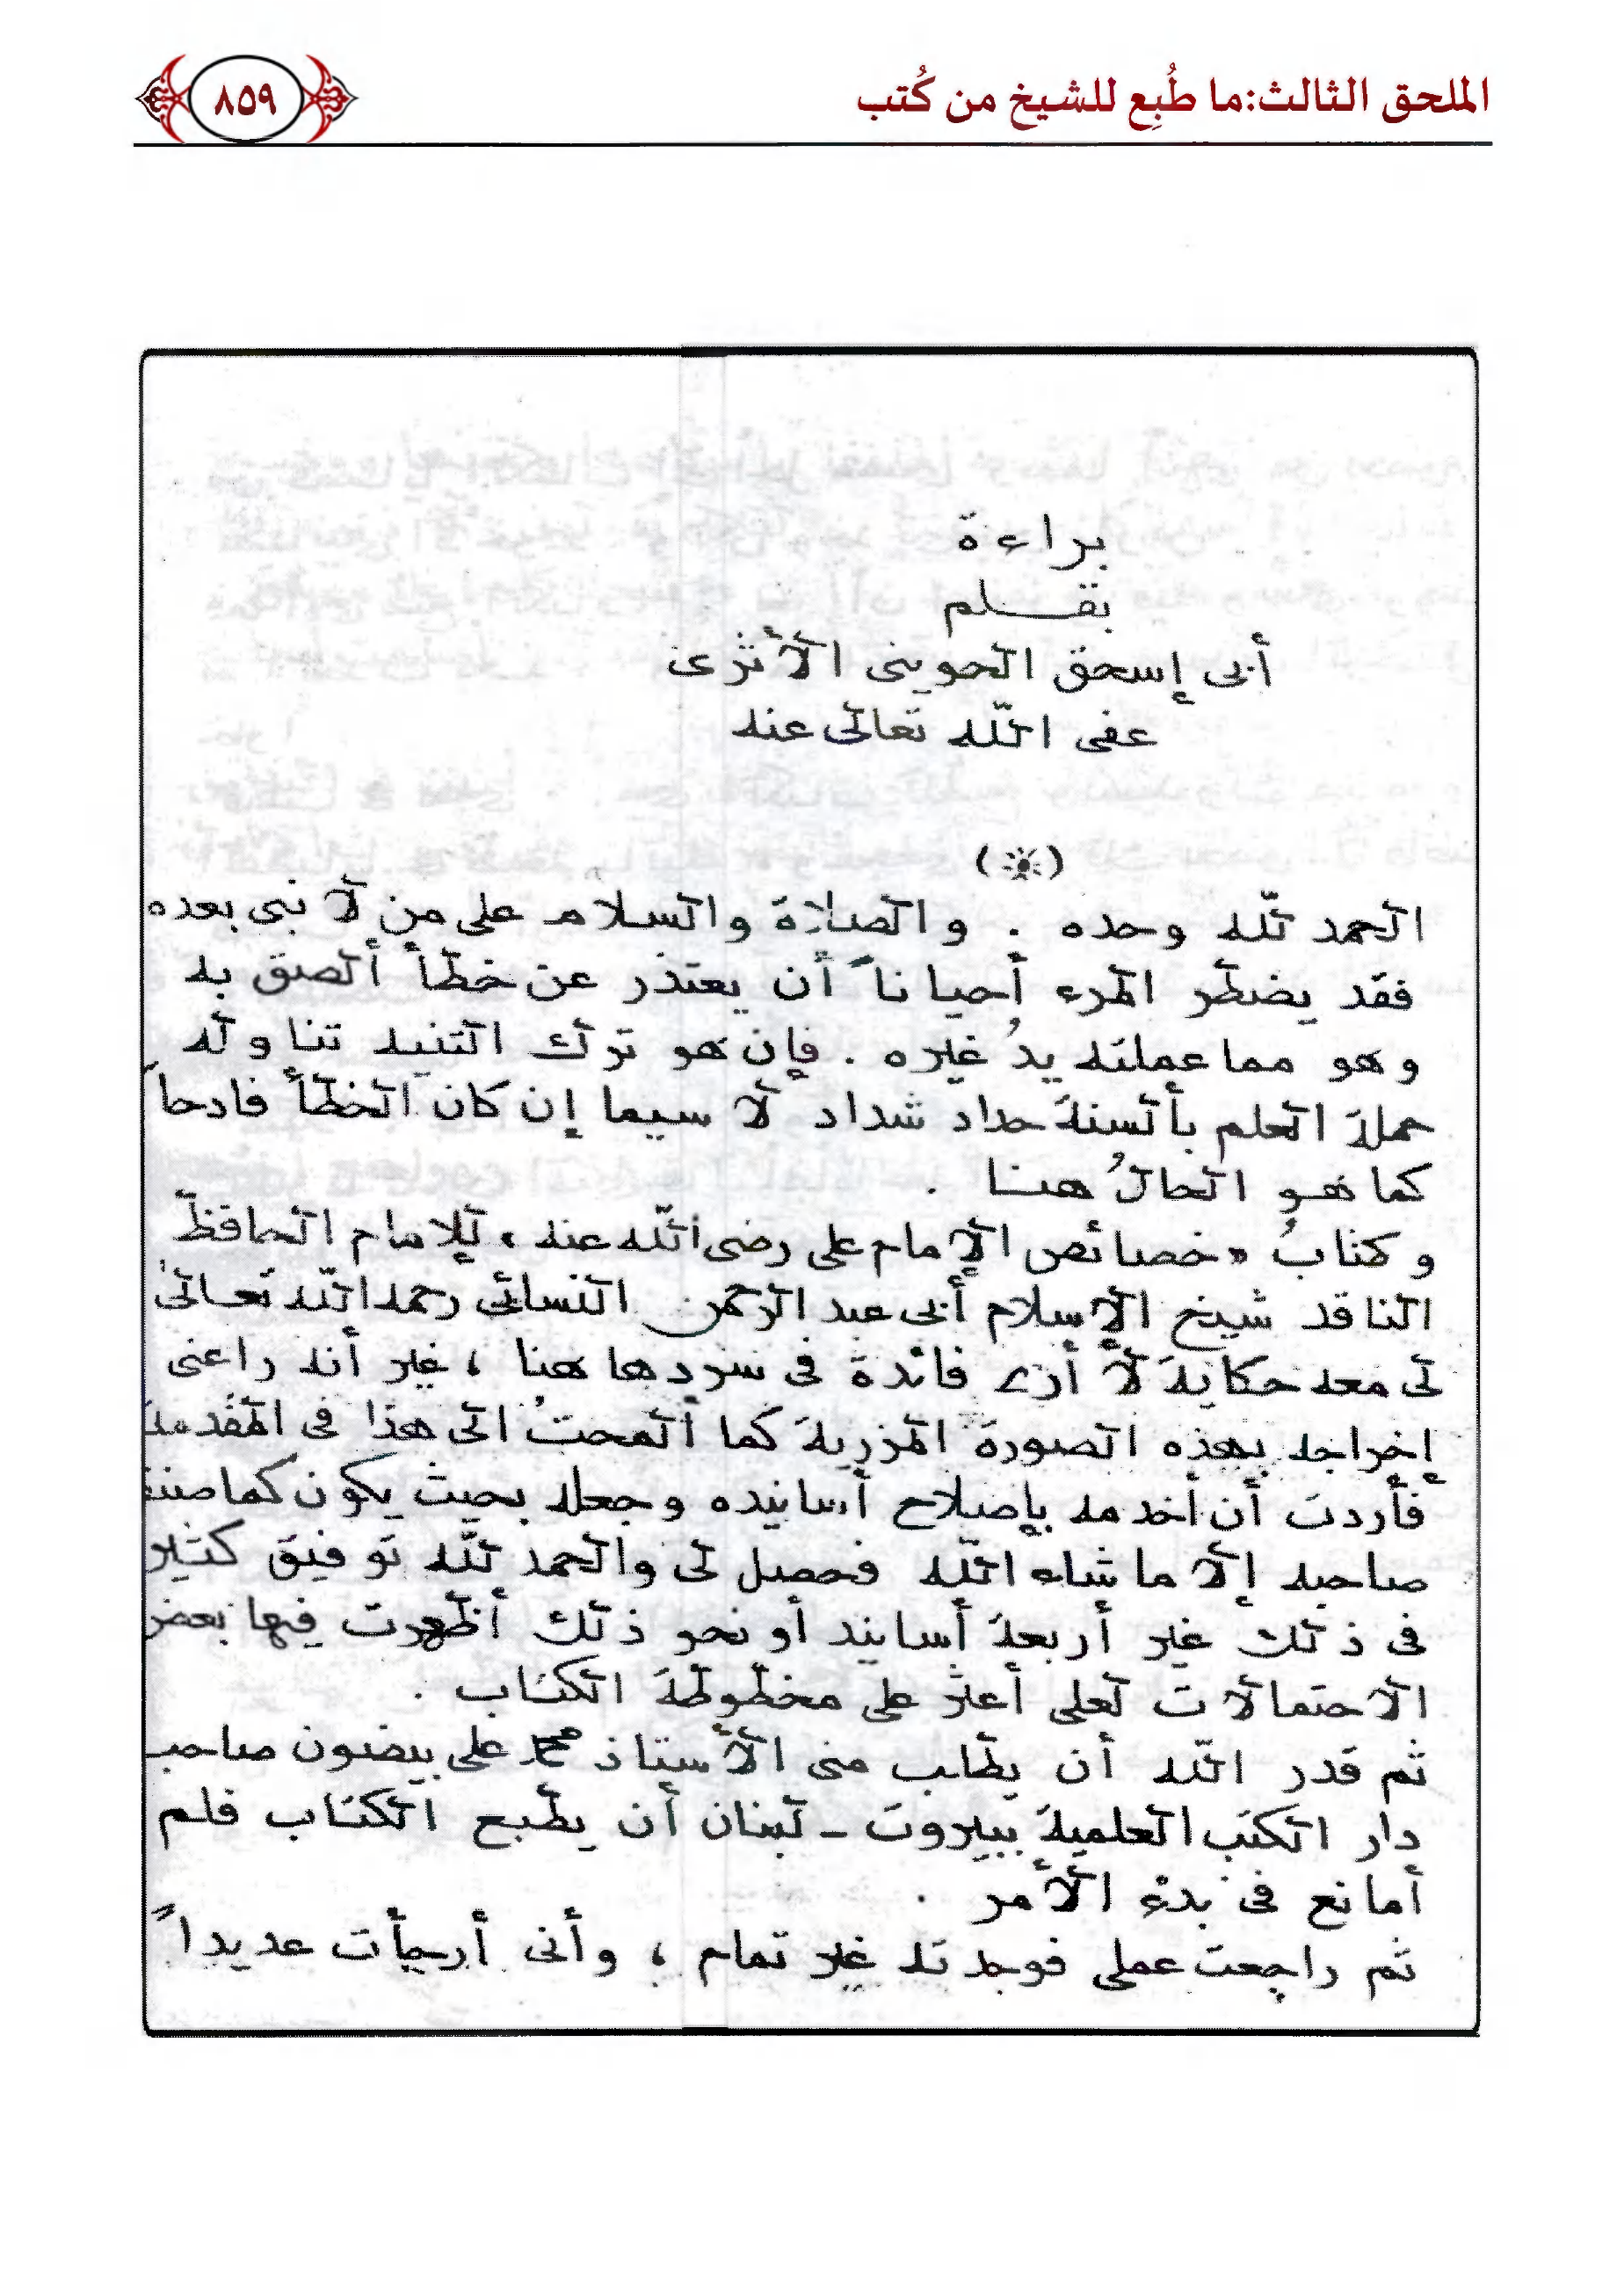 الملحق الثالث: ما طُبِع للشيخ من كُتب
٨٥٩
براءة
بقلم
أبى إسحق الحوينى الأثرى
عفى الله تعالى عنه
(*)
الحمد لله وحده . والصلاة والسلام على من لا نبى بعده
فقد يضطر المرء أحياناً أن يعتذر عن خطأ ألصق به
وهو مما عملته يدُ غيره . فإن هو ترك التنبيه تناوله
حملة العلم بألسنة حداد شداد لا سيما إن كان الخطأ فادحاً
كما هو الحالُ هنا .
وكتابُ «خصائص الإمام على رضى الله عنه» للإمام الحافظ
الناقد شيخ الإسلام أبى عبد الرحمن النسائى رحمه الله تعالى
لى معه حكاية لا أرى فائدة فى سردها هنا ، غير أنه راعنى
إخراجه بهذه الصورة المزرية كما ألمحتُ الى هذا فى المقدمة
فأردت أن أخدمه بإصلاح أسانيده وجعله بحيث يكون كما صنفه
صاحبه إلا ما شاء الله فحصل لى والحمد لله توفيق كثير
فى ذلك غير أربعة أسانيد أو نحو ذلك أظهرت فيها بعض
الاحتمالات لعلى أعثر على مخطوطة الكتاب .
ثم قدر الله أن يطلب منى الأستاذ محمد على بيضون صاحب
دار الكتب العلمية ببيروت - لبنان أن يطبع الكتاب فلم
أمانع فى بدء الأمر .
ثم راجعت عملى فوجدته غير تمام ، وأنى أرجأت عديداً